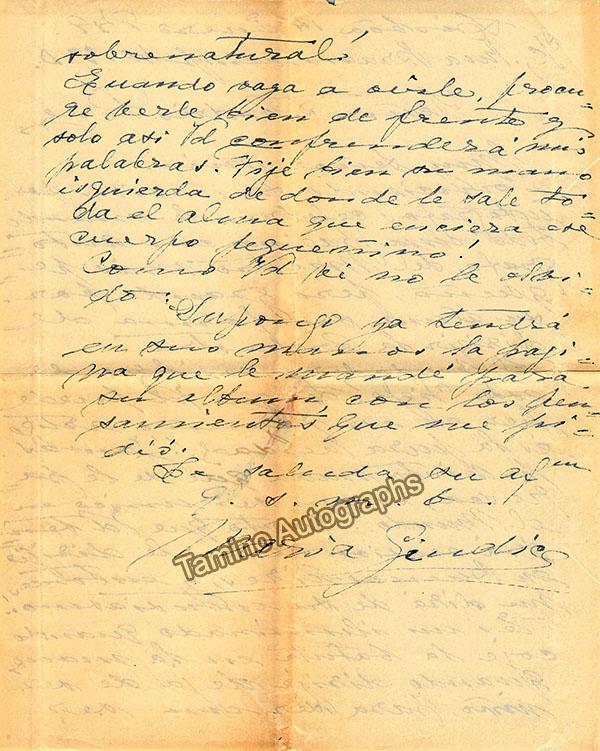 sobrenatural!
Cuando vaya a oírle, procu-
re verle bien de frente y
solo asi Vd comprenderá mis
palabras. Fije bien su mano
isquierda de donde le sale to-
da el alma que enciera ese
cuerpo pequeñino!
Como Vd vé no le olvi-
do.
Supongo ya tendrá
en sus manos la pagi-
na que le mandé para
su album con los pen-
samientos que me pi-
dió.
Le saluda su af
q. s. m. b.
Tamino Autographs